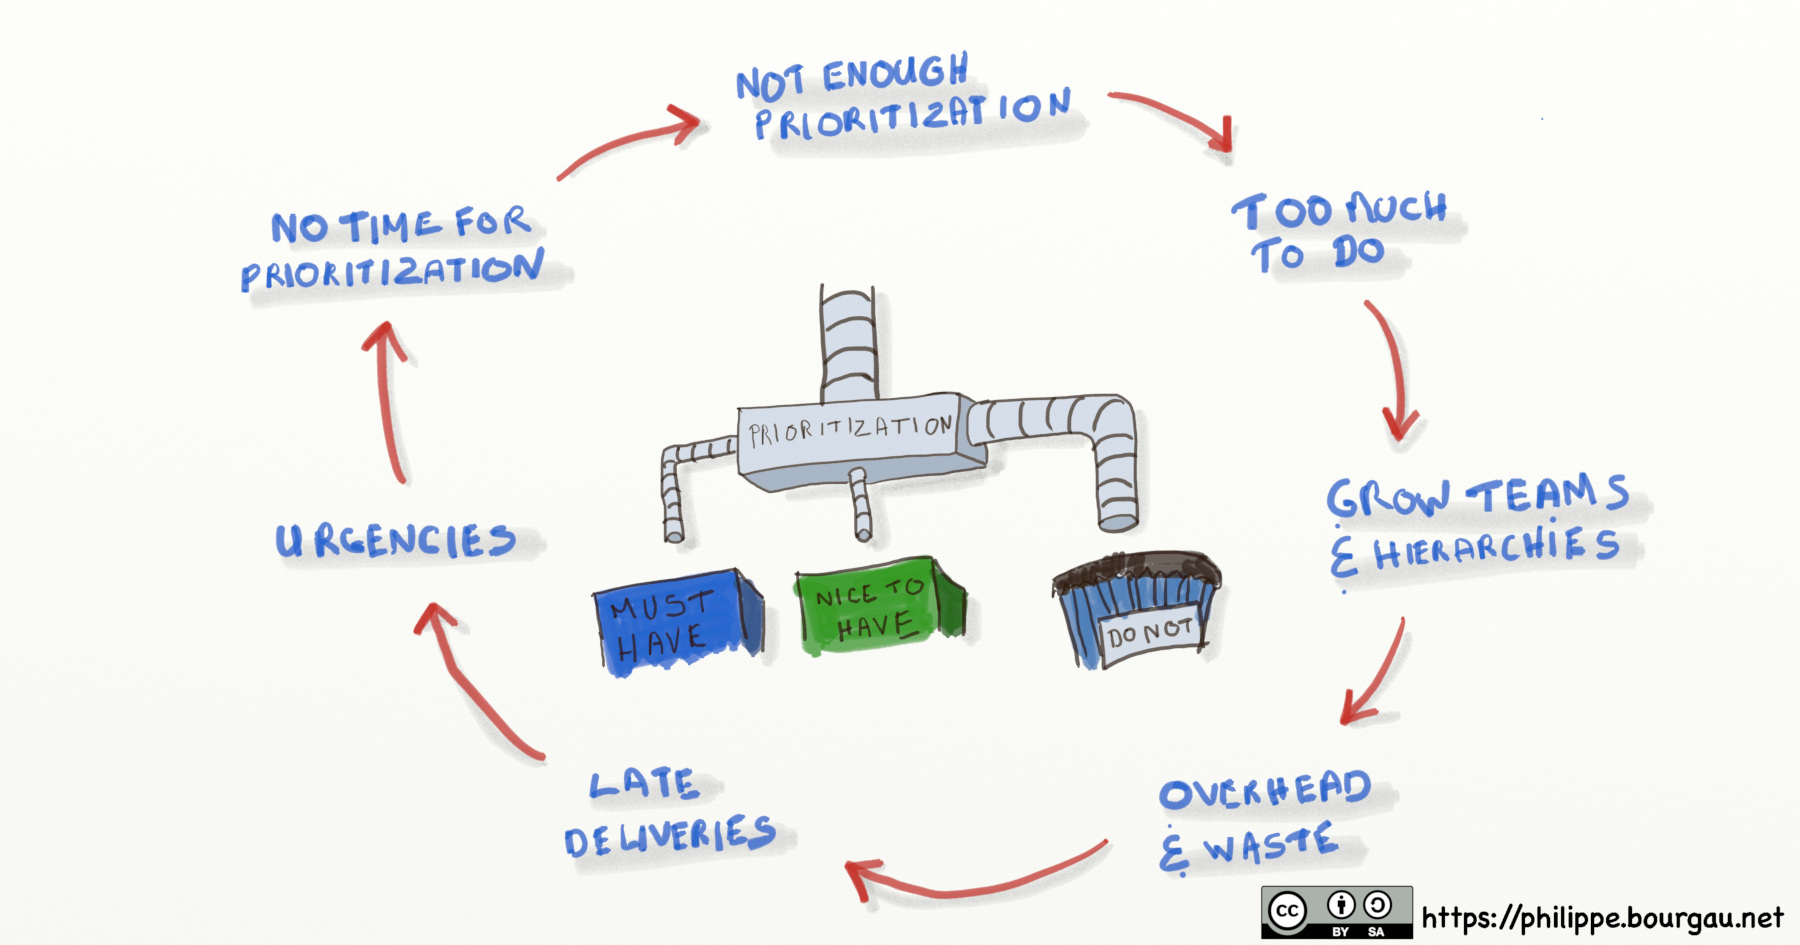 NOT ENOUGH
PRIORITIZATION
TOO MUCH
TO DO
GROW TEAMS
& HIERARCHIES
OVERHEAD
& WASTE
LATE
DELIVERIES
URGENCIES
NO TIME FOR
PRIORITIZATION
PRIORITIZATION
MUST
HAVE
NICE TO
HAVE
DO NOT
cc
BY SA
https://philippe.bourgau.net